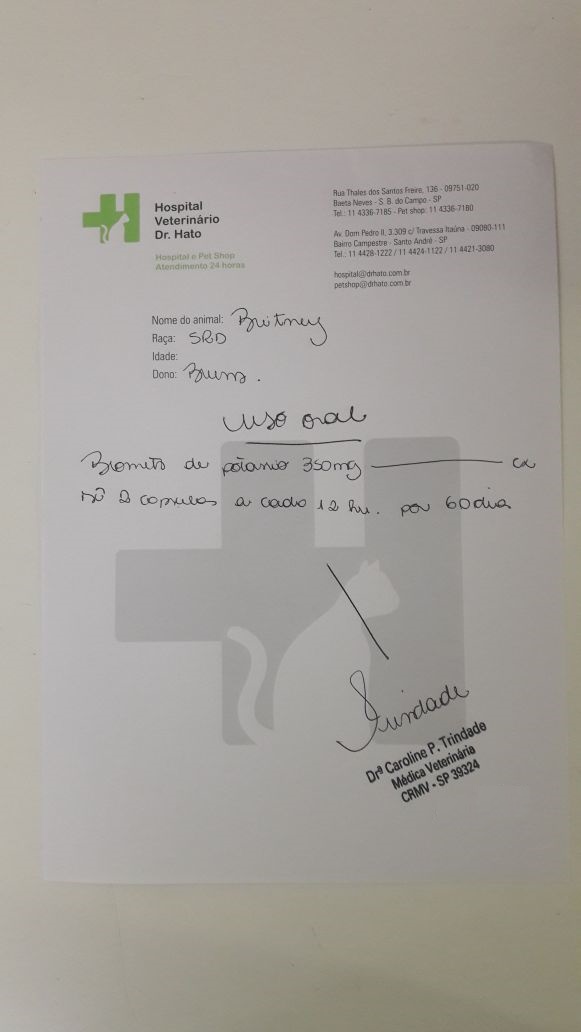 Hospital
Veterinário
Dr. Hato
Hospital e Pet Shop
Atendimento 24 horas
Rua Thales dos Santos Freire, 136 - 09751-020
Baeta Neves - S. B. do Campo - SP
Tel.: 11 4336-7185 - Pet shop: 11 4336-7180
Av. Dom Pedro II, 3.309 c/ Travessa Itaúna - 09080-111
Bairro Campestre - Santo André - SP
Tel.: 11 4428-1222 / 11 4424-1122 / 11 4421-3080
hospital@drhato.com.br
petshop@drhato.com.br
Nome do animal: Britney
Raça: SRD
Idade:
Dono:
uso oral
Brometo de potássio 350mg cx
2 capsulas a cada 12 hr. por 60 dias
Trindade
Drª Caroline P. Trindade
Médica Veterinária
CRMV - SP 39324